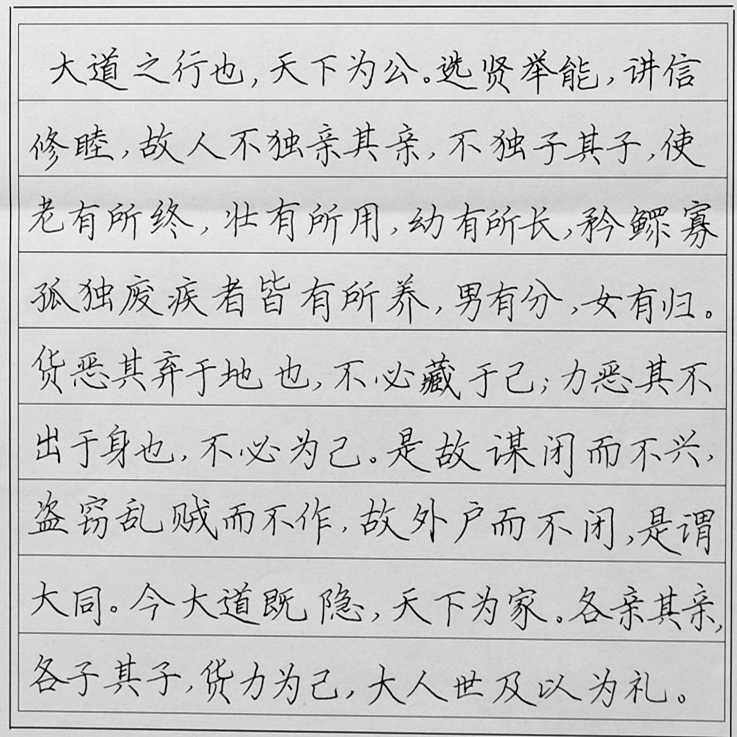 大道之行也,天下为公。选贤举能,讲信
修睦,故人不独亲其亲,不独子其子,使
老有所终,壮有所用,幼有所长,矜鳏寡
孤独废疾者皆有所养,男有分,女有归。
货恶其弃于地也,不必藏于己;力恶其不
出于身也,不必为己。是故谋闭而不兴,
盗窃乱贼而不作,故外户而不闭,是谓
大同。今大道既隐,天下为家。各亲其亲,
各子其子,货力为己,大人世及以为礼。